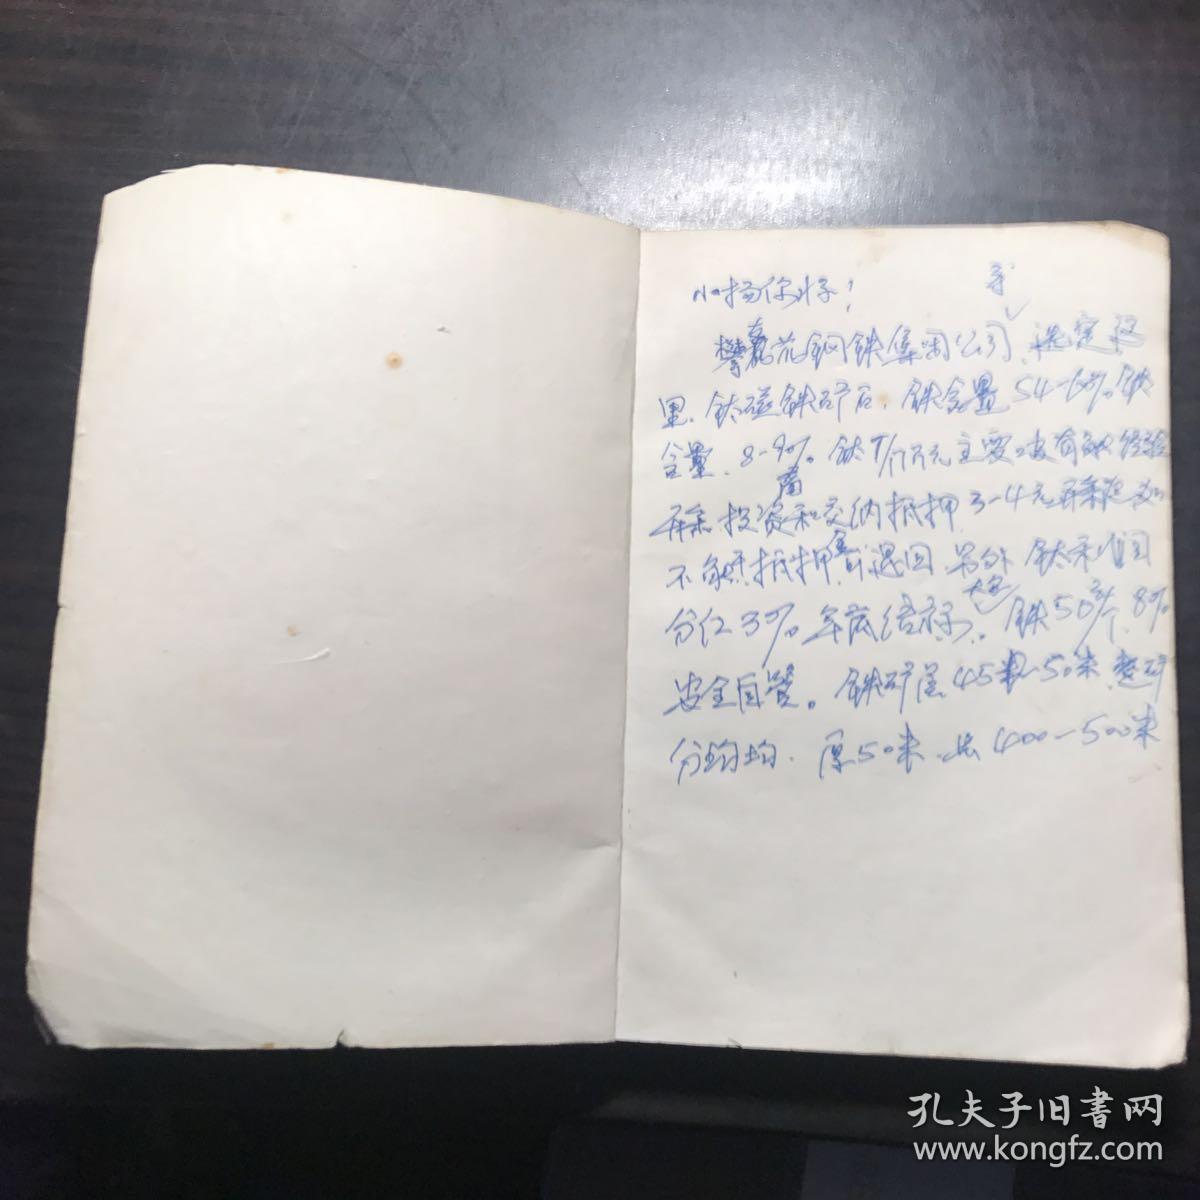 小杨你好！
攀枝花钢铁集团公司、选定这
里、钛磁铁矿石、铁含量54-60%钛
含量、8-9%。钛T/1万元主要
投资和交纳抵押3-4元
不能 抵押金可退回、另外 钛利润
分红3%。年底结 。铁50 8%
安全自管。铁矿层45米-50米、整矿
分均均、厚50米、长400-500米
孔夫子旧书网
www.kongfz.com